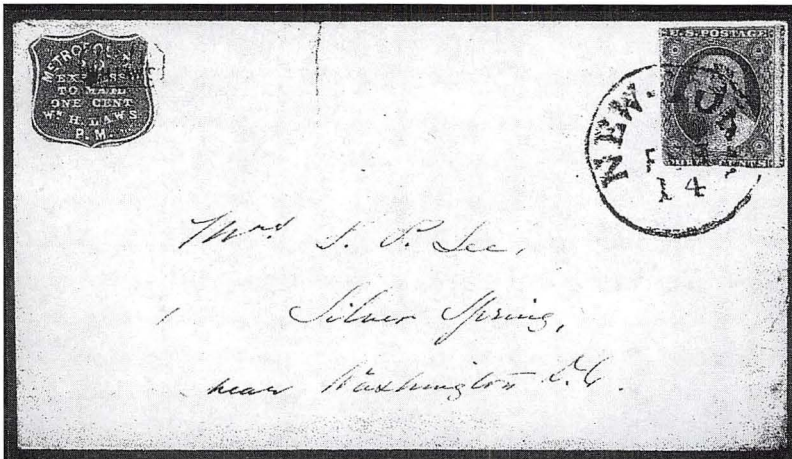 METROPOLITAN
EXPRESS
TO MAIL
ONE CENT
Wm H. LAWS
P.M.
U.S. POSTAGE
THREE CENTS
NEW-YORK
14
Mrs S. P. Lee,
Silver Spring,
near Washington D.C.